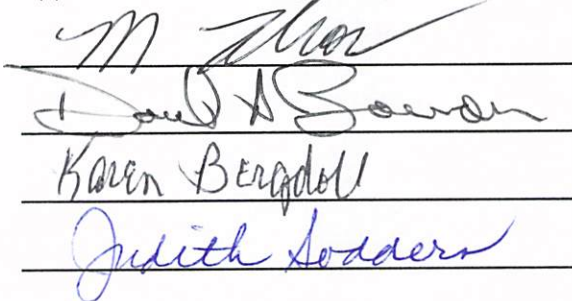 M
David A Bowden
Karen Bergdoll
Judith Sodders